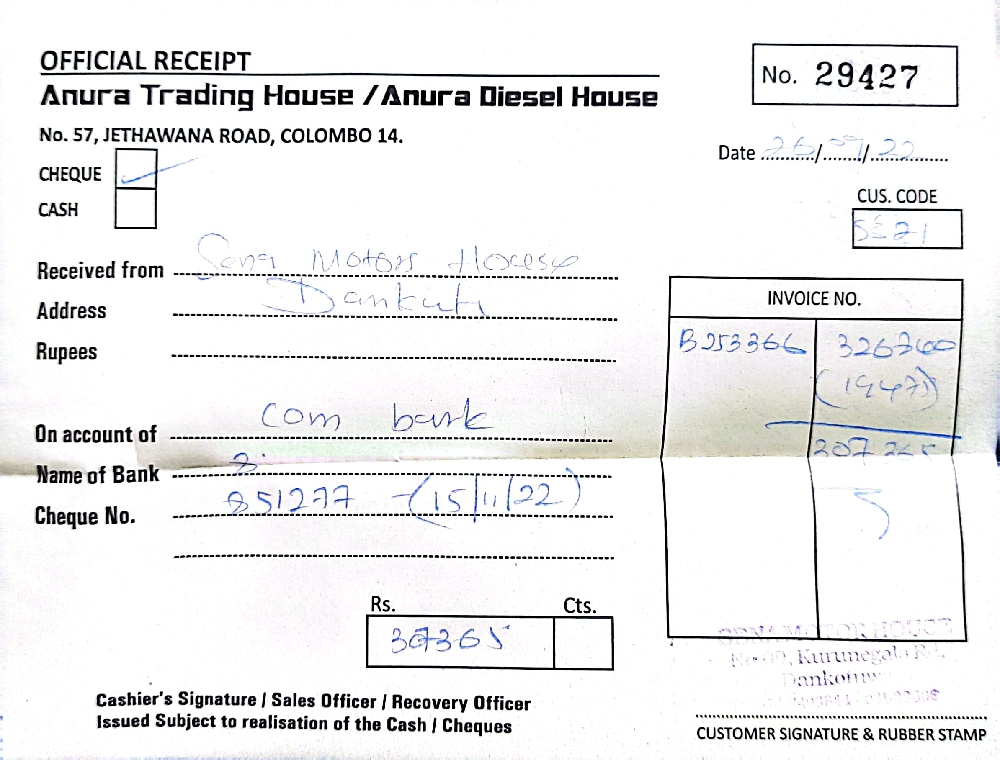 OFFICIAL RECEIPT
No. 29427
Anura Trading House / Anura Diesel House
No. 57, JETHAWANA ROAD, COLOMBO 14.
Date 26/09/22
CHEQUE
CASH
CUS. CODE
Received from Motors
Address Dankuti
INVOICE NO.
Rupees
B253366
On account of Com bank
Name of Bank
Cheque No. 851277 - (15/11/22)
Rs. Cts.
MOTOR HOUSE
Kurunegala Rd,
Cashier's Signature / Sales Officer / Recovery Officer
Issued Subject to realisation of the Cash / Cheques
CUSTOMER SIGNATURE & RUBBER STAMP